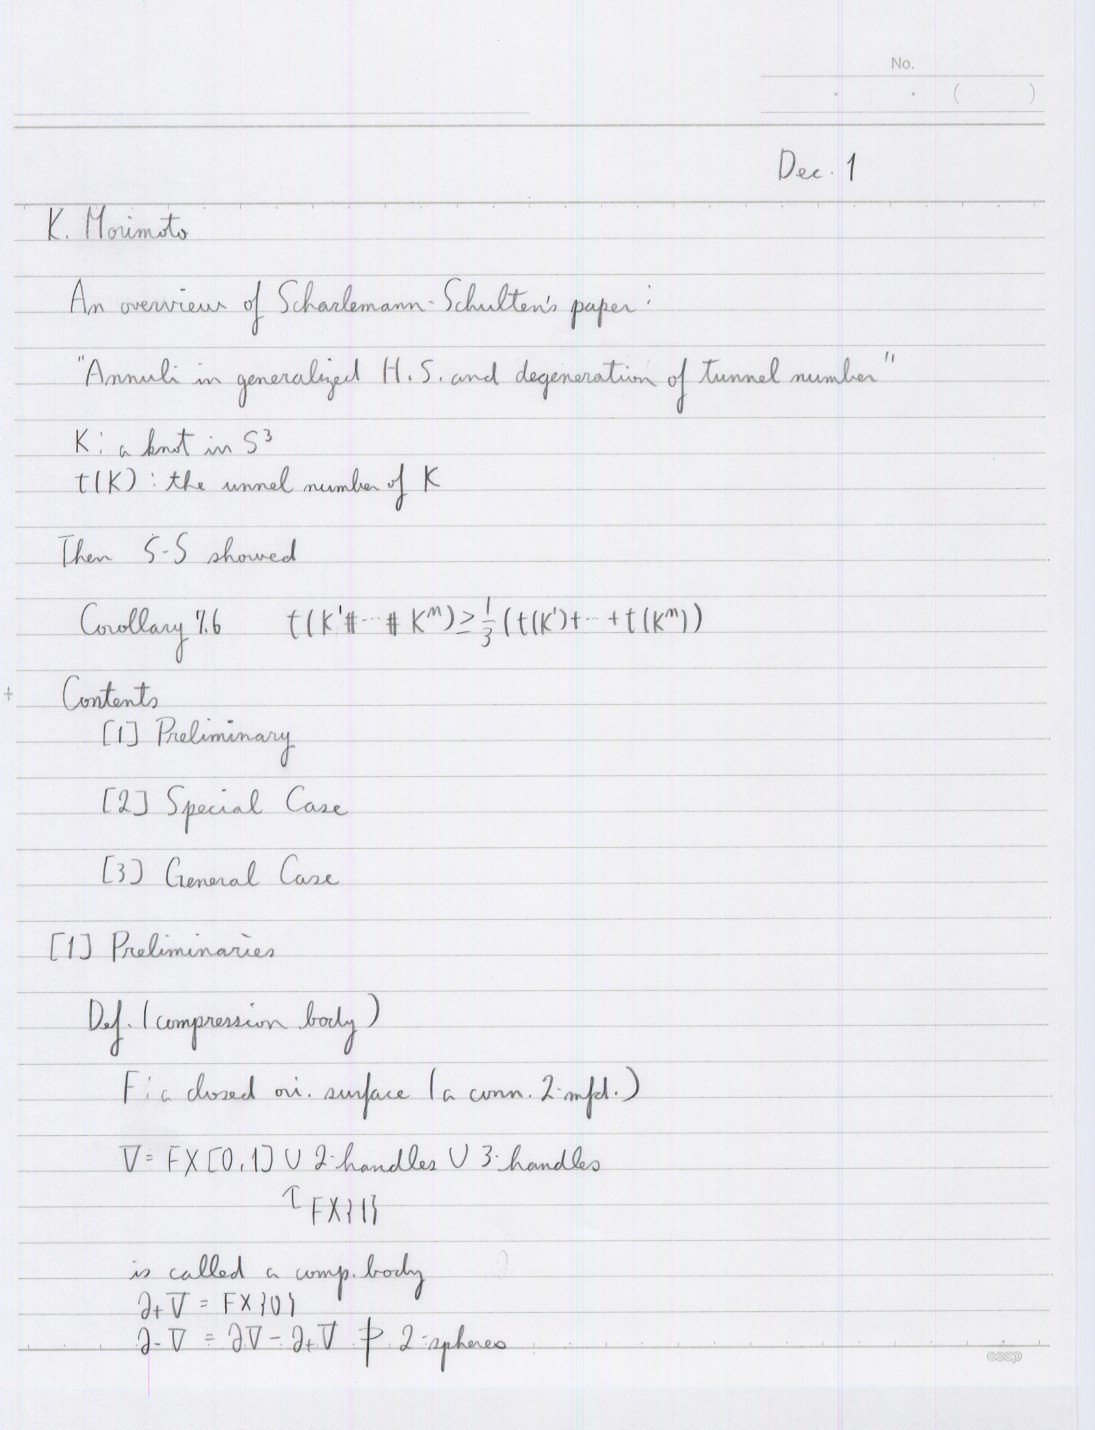 No.
( )
Dec. 1
K. Morimoto
An overview of Scharlemann-Schulten's paper:
"Annuli in generalized H.S. and degeneration of tunnel number"
K: a knot in S³
t(K): the unnel number of K
Then S-S showed
Corollary 7.6 t(K¹#⋯#Kⁿ) ≥ 1/3 (t(K¹)+⋯+t(Kⁿ))
Contents
[1] Preliminary
[2] Special Case
[3] General Case
[1] Preliminaries
Def. (compression body)
F: a closed ori. surface (a conn. 2-mfd.)
V = F×[0,1] ∪ 2-handles ∪ 3-handles
↑ F×{1}
is called a comp. body
∂₊V = F×{0}
∂₋V = ∂V - ∂₊V ∌ 2-spheres
coop